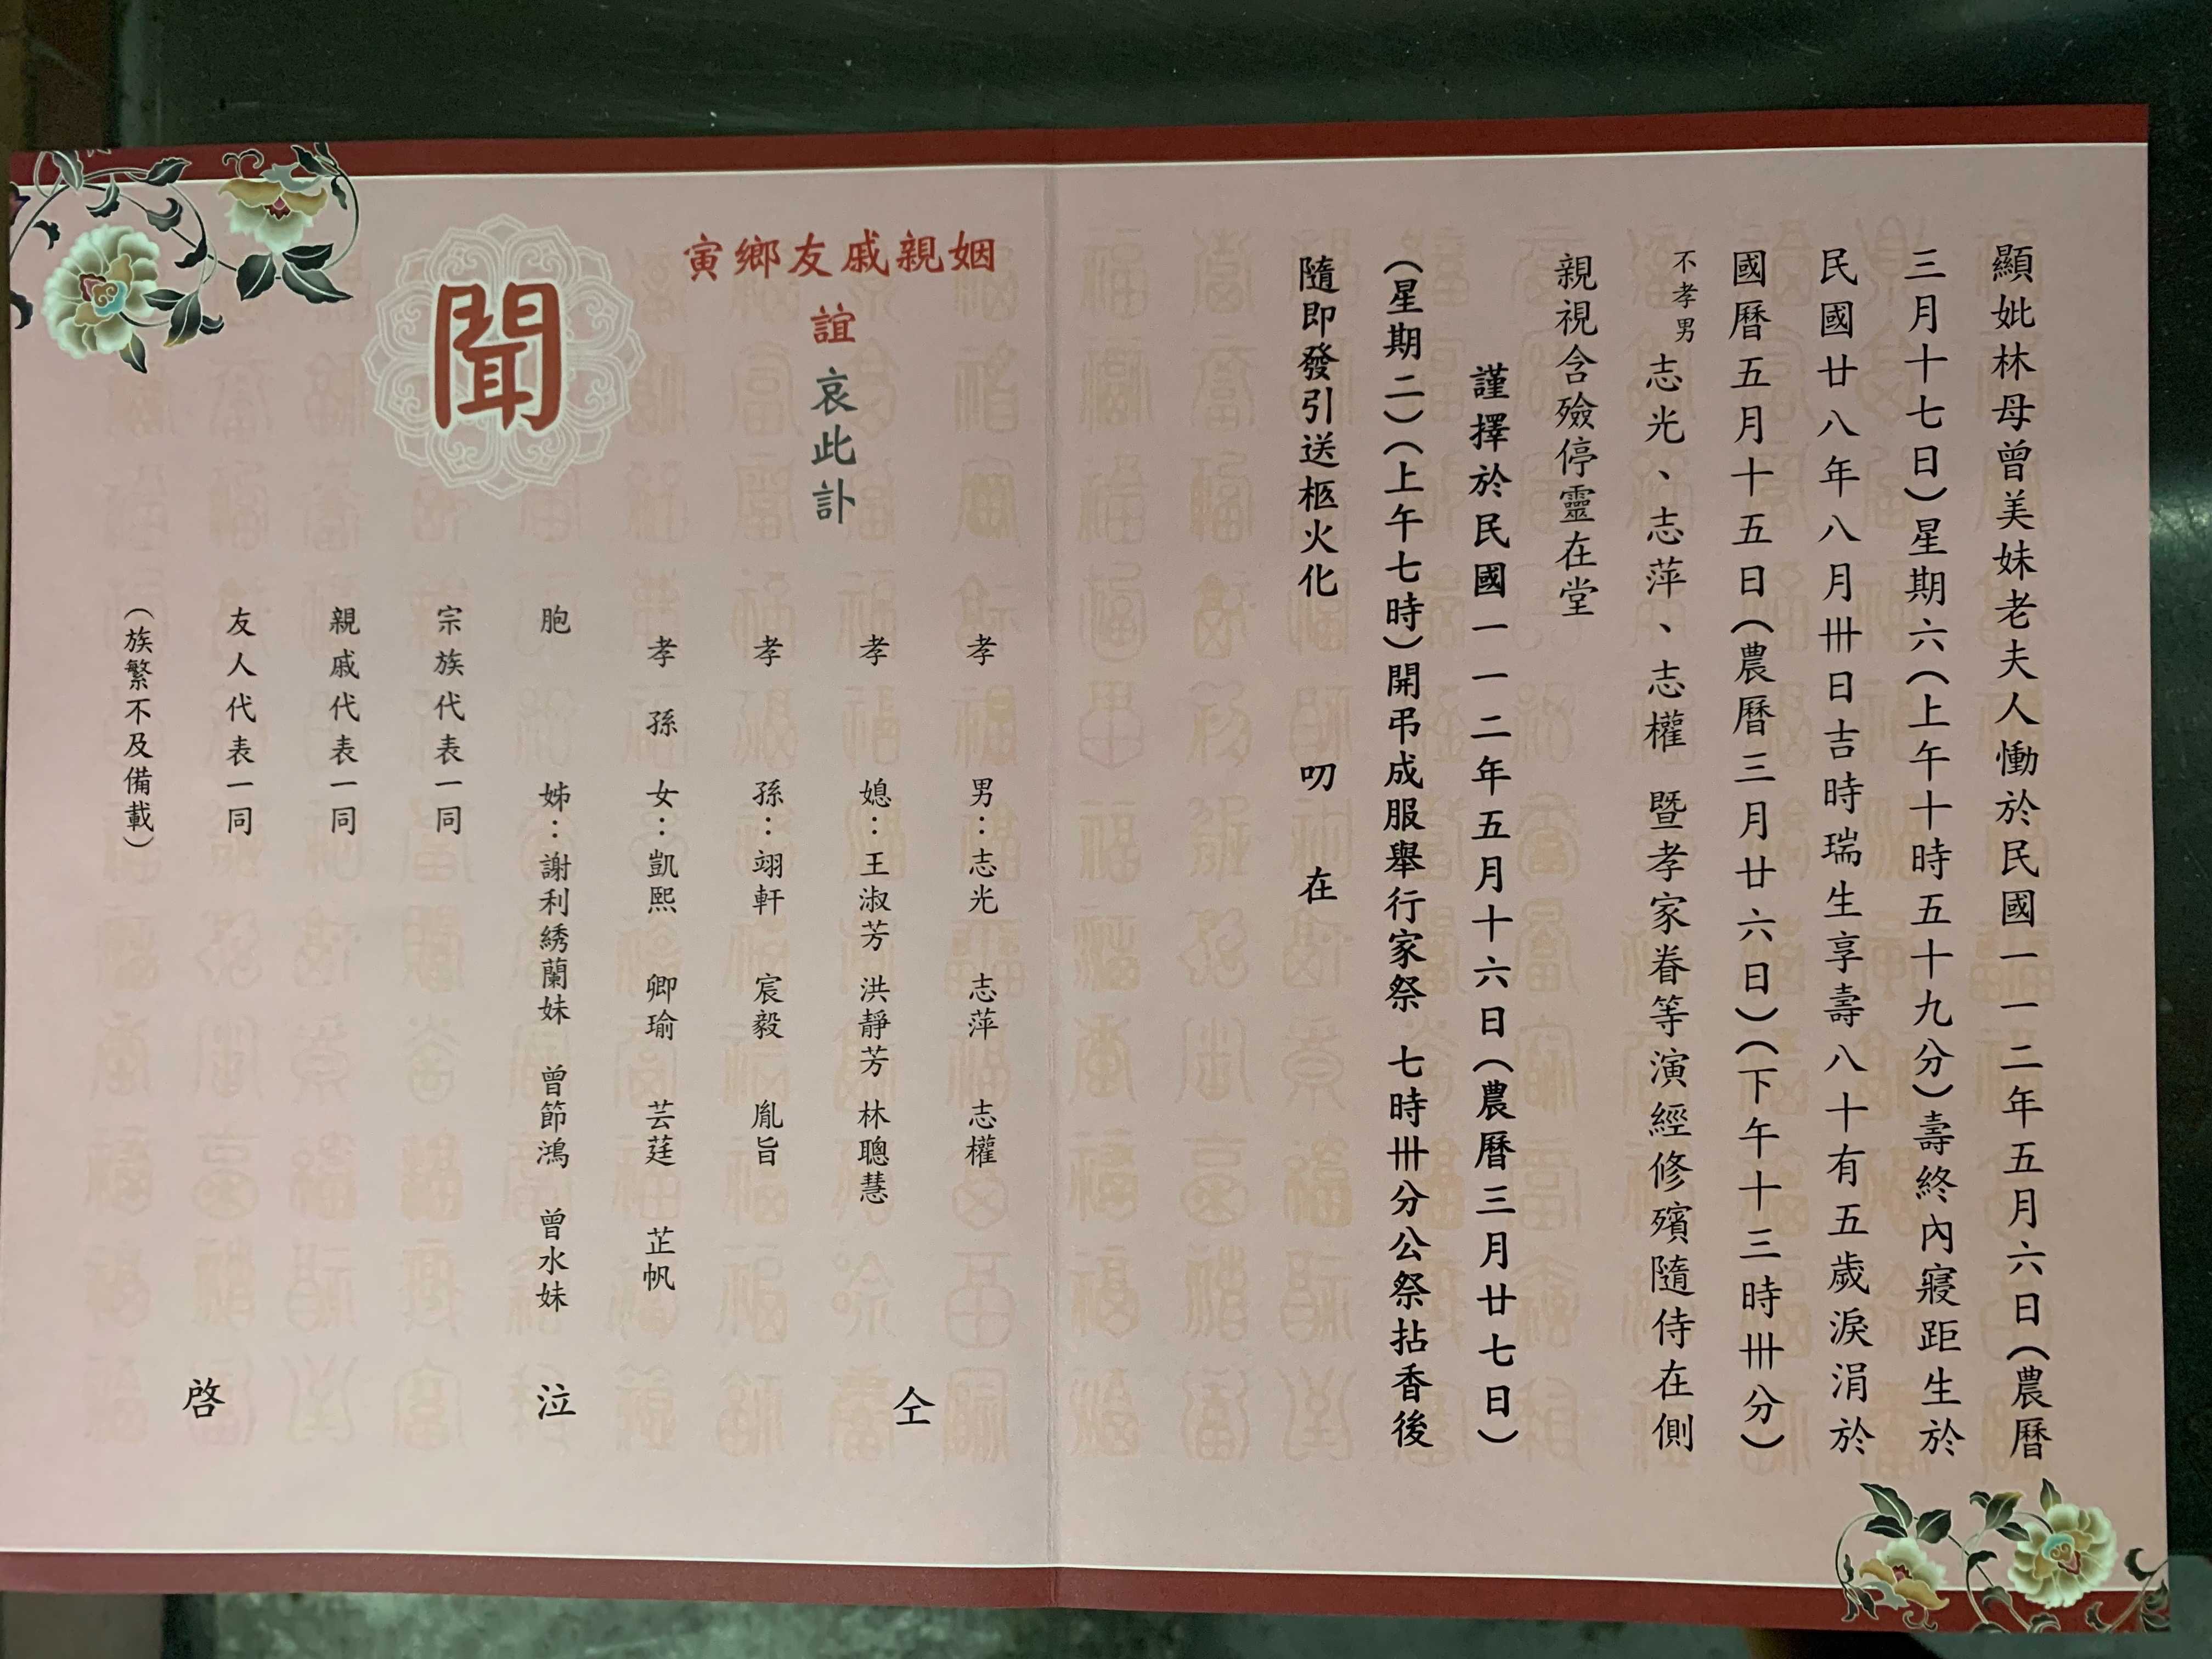 顯妣林母曾美妹老夫人慟於民國一一二年五月六日(農曆
三月十七日)星期六(上午十時五十九分)壽終內寢距生於
民國廿八年八月卅日吉時瑞生享壽八十有五歲淚涓於
國曆五月十五日(農曆三月廿六日)(下午十三時卅分)
不孝男志光、志萍、志權 暨孝家眷等演經修殯隨侍在側
親視含殮停靈在堂
謹擇於民國一一二年五月十六日(農曆三月廿七日)
(星期二)(上午七時)開弔成服舉行家祭 七時卅分公祭拈香後
隨即發引送柩火化 叨 在
寅鄉友戚親姻
誼 哀此訃
聞
孝 男:志光 志萍 志權
孝 媳:王淑芳 洪靜芳 林聰慧
孝 孫:翊軒 宸毅 胤旨
孝 孫 女:凱熙 卿瑜 芸莛 芷帆
胞 姊:謝利綉蘭妹 曾節鴻 曾水妹
宗族代表一同
親戚代表一同
友人代表一同
(族繁不及備載)
仝
泣
啓